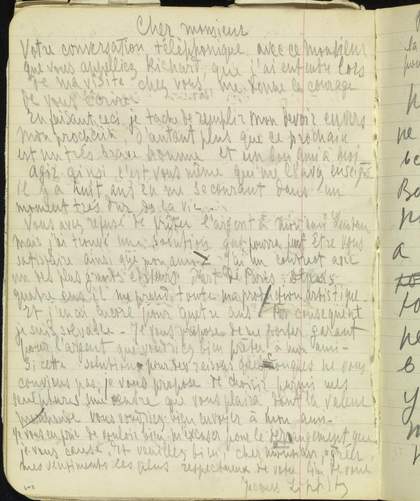 Cher monsieur
Votre conversation téléphonique avec ce monsieur
que vous appelliez Richart, que j'ai entendu lors
de ma visite chez vous, me donne le courage
de vous écrire
En faisant ceci, je tache de remplir mon devoir envers
mon prochain, d'autant plus que ce prochain
est un très brave homme et un bon ami à moi
Agir ainsi c'est vous même qui me l'avez enseigné
il y a huit ans en me secourant dans un
moment très dur de la vie
Vous avez refusé de prêter l'argent à mon ami
mais j'ai trouvé une solution qui pourra peut être vous
satisfaire ainsi que mon ami J'ai un contract avec
un des plus grands d'art de Paris
quatre ans il me prend toute ma artistique
et j'en ai encore pour quatre ans Par consequent
je suis solvable - Je vous propose de me porter garant
pour l'argent que voudriez bien prêter à mon ami -
Si cette solution pour des raisons quelconques ne vous
convient pas, je vous propose de choisir parmi mes
sculptures une œuvre qui vous plaira dont la valeur
vous voudriez bien envoyer à mon ami -
je vous prie de vouloir bien m'excuser pour le derangement que
je vous cause et veuillez bien, cher monsieur,
mes sentiments les plus respectueux de votre
Jacques Lipchitz